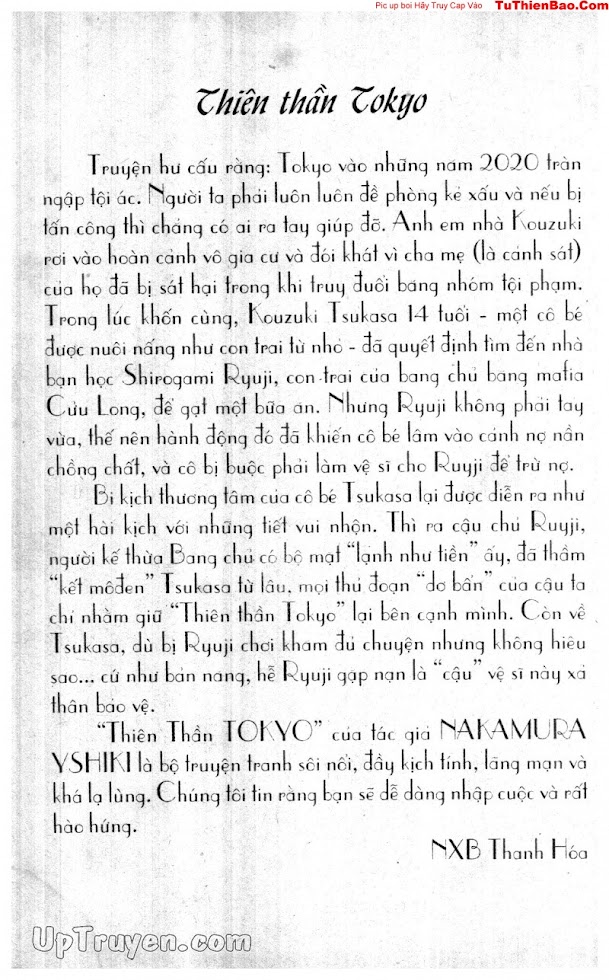 Pic up boi Hãy Truy Cap Vào TuThienBao.Com
Thiên thần Tokyo
Truyện hư cấu rằng: Tokyo vào những năm 2020 tràn
ngập tội ác. Người ta phải luôn luôn đề phòng kẻ xấu và nếu bị
tấn công thì chẳng có ai ra tay giúp đỡ. Anh em nhà Kouzuki
rơi vào hoàn cảnh vô gia cư và đói khát vì cha mẹ (là cảnh sát)
của họ đã bị sát hại trong khi truy đuổi băng nhóm tội phạm.
Trong lúc khốn cùng, Kouzuki Tsukasa 14 tuổi - một cô bé
được nuôi nấng như con trai từ nhỏ - đã quyết định tìm đến nhà
bạn học Shirogami Ryuji, con trai của bang chủ bang mafia
Cửu Long, để gạt một bữa ăn. Nhưng Ryuji không phải tay
vừa, thế nên hành động đó đã khiến cô bé lâm vào cảnh nợ nần
chồng chất, và cô bị buộc phải làm vệ sĩ cho Ruyji để trừ nợ.
Bi kịch thương tâm của cô bé Tsukasa lại được diễn ra như
một hài kịch với những tiết vui nhộn. Thì ra cậu chủ Ruyji,
người kế thừa Bang chủ có bộ mặt "lạnh như tiền" ấy, đã thầm
"kết môđen" Tsukasa từ lâu, mọi thủ đoạn "dơ bẩn" của cậu ta
chỉ nhằm giữ "Thiên thần Tokyo" lại bên cạnh mình. Còn về
Tsukasa, dù bị Ryuji chơi khăm đủ chuyện nhưng không hiểu
sao... cứ như bản năng, hễ Ryuji gặp nạn là "cậu" vệ sĩ này xả
thân bảo vệ.
"Thiên Thần TOKYO" của tác giả NAKAMURA
YSHIKI là bộ truyện tranh sôi nổi, đầy kịch tính, lãng mạn và
khá lạ lùng. Chúng tôi tin rằng bạn sẽ dễ dàng nhập cuộc và rất
hào hứng.
NXB Thanh Hóa
UpTruyen.com